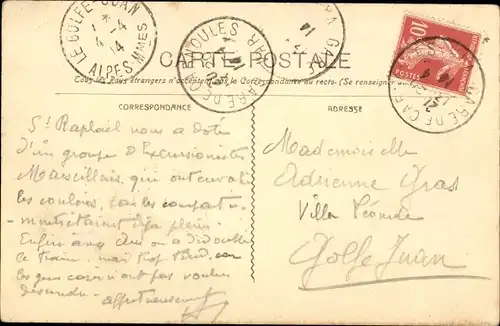 LE GOLFE-JUAN
1 -4
14
ALPES-Mmes
GARE DE CARNOULES VAR
CARTE POSTALE
Tous les Pays étrangers n'acceptent pas la Correspondance au recto. (Se renseigner
10
POSTES
CORRESPONDANCE
ADRESSE
St Raphaël nous a doté
d'un groupe d'Excursionistes
Marseillais qui ont envahi
les couloirs, car les compartiments
étaient déjà pleins.
Enfin on a dédoublé
le train. mais trop tard, car
les gens casés n'ont pas voulu
descendre. affectueusement
Mademoiselle
Adrienne Gras
Villa
Golfe Juan